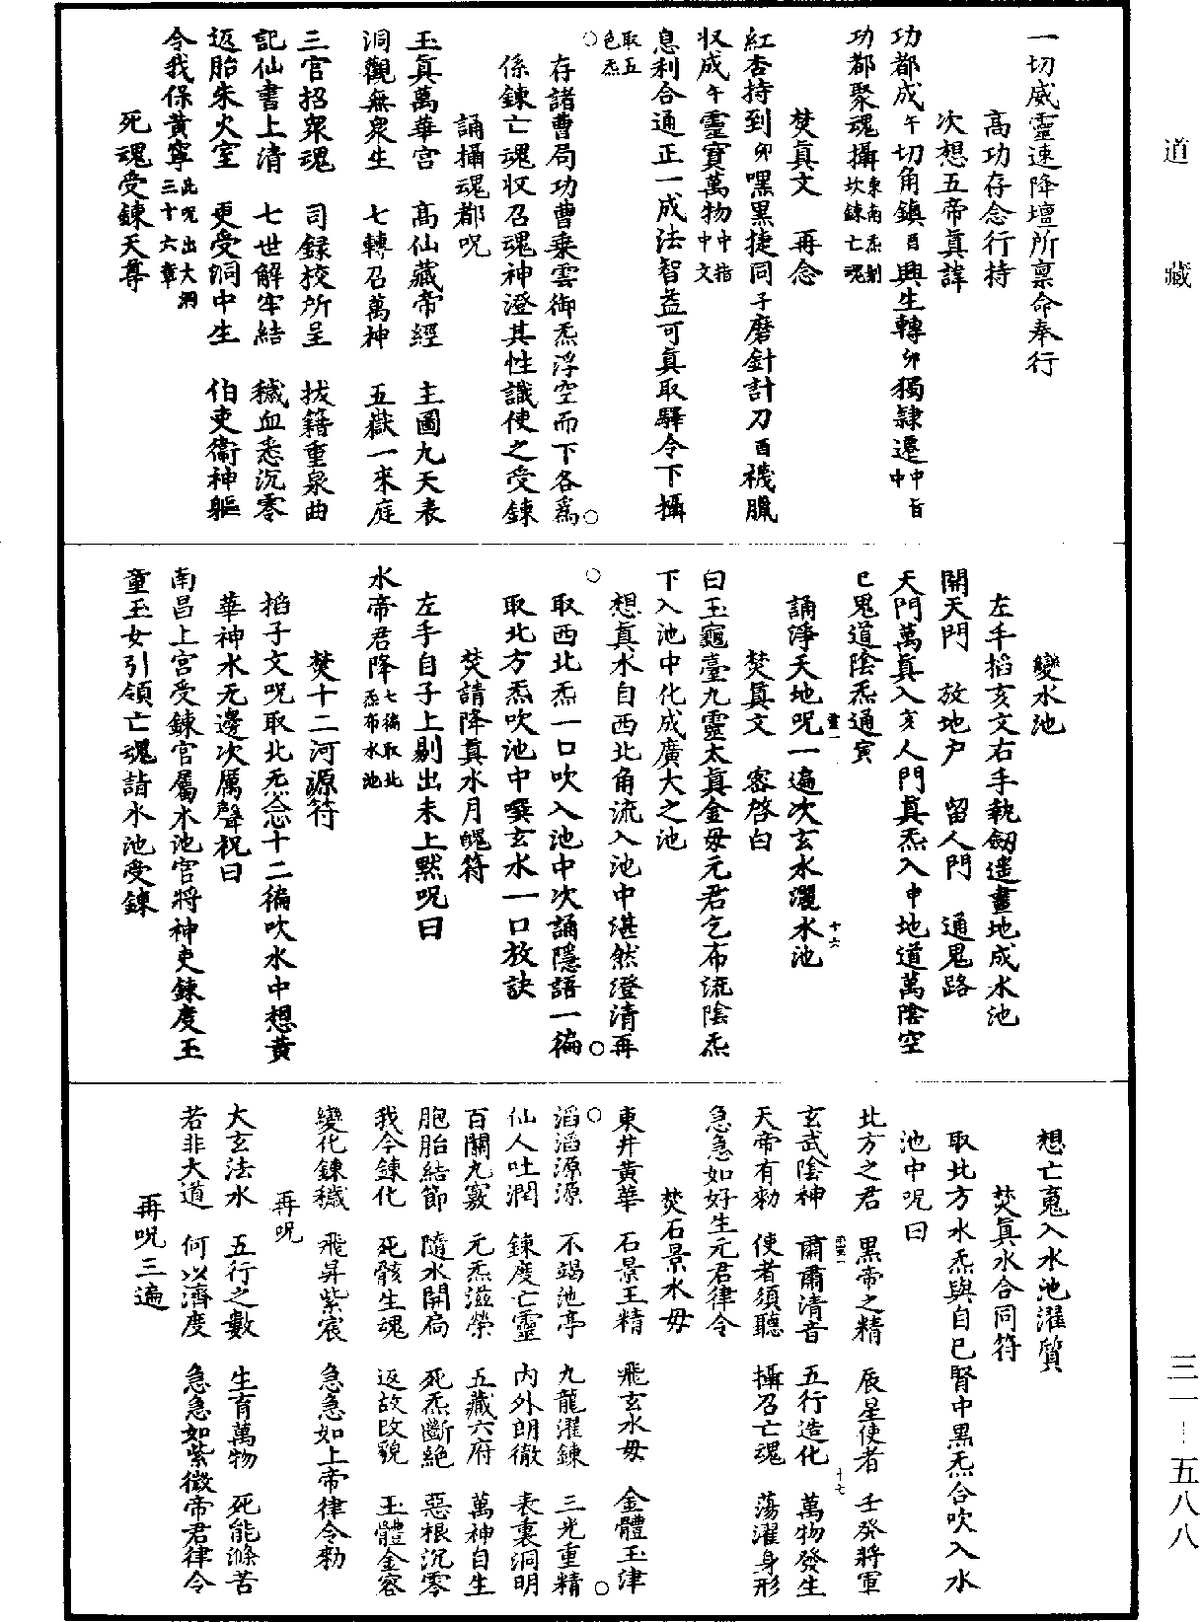 道藏
三一—五八八
一切威靈速降壇所稟命奉行
高功存念行持
次想五帝眞諱
功都成午切角鎮酉興生轉卯獨隷遷中中旨
功都聚魂攝東南炁剔坎鍊亡魂
焚眞文　再念
紅杏持到卯嘿黑捷同子磨針計刀酉襪臘
収成午靈寶萬物中指中文
息利合通正一成法智益可眞取驛令下攝
取五色炁
存諸曹局功曹乘雲御炁浮空而下各爲
係鍊亡魂収召魂神澄其性識使之受鍊
誦攝魂都呪
玉眞萬華宫　高仙藏帝經　主圖九天表
洞觀無衆生　七轉召萬神　五嶽一來庭
三官招衆魂　司録校所呈　拔籍重泉曲
記仙書上清　七世解牢結　穢血悉沉零
返胎朱火室　更受洞中生　伯吏衞神軀
令我保黄寧此呪出大洞三十六章
死魂受鍊天尊
變水池
左手掐亥文右手執劒遥畫地成水池
開天門　放地户　留人門　通鬼路
天門萬眞入亥人門眞炁入申地道萬陰空
巳鬼道陰炁通寅
誦淨天地呪一遍次玄水灑水池
焚眞文　密啓白
曰玉龜臺九靈太眞金母元君乞布流陰炁
下入池中化成廣大之池
想眞水自西北角流入池中湛然澄清再
取西北炁一口吹入池中次誦隱語一徧
取北方炁吹池中噀玄水一口放訣
焚請降眞水月魄符
左手自子上剔出未上黙呪曰
水帝君降七徧取北炁布水池
焚十二河源符
掐子文呪取北炁念十二徧吹水中想黄
華神水无邊次厲聲祝曰
南昌上宫受鍊官屬水池官將神吏鍊度玉
童玉女引領亡魂詣水池受鍊
想亡䰟入水池濯質
焚眞水合同符
取北方水炁與自己腎中黑炁合吹入水
池中呪曰
北方之君　黒帝之精　辰星使者　壬癸將軍
玄武陰神　肅肅清音　五行造化　萬物發生
天帝有勑　使者須聽　攝召亡魂　蕩濯身形
急急如好生元君律令
焚石景水母
東井黄華　石景玉精　飛玄水母　金體玉津
滔滔源源　不竭池亭　九龍濯鍊　三光重精
仙人吐潤　鍊度亡靈　内外朗徹　表裏洞明
百關九竅　元炁滋榮　五藏六府　萬神自生
胞胎結節　隨水開扃　死炁斷絶　惡根沉零
我今鍊化　死骸生魂　返故改貌　玉體金容
變化鍊穢　飛昇紫宸　急急如上帝律令勑
再呪
大玄法水　五行之數　生育萬物　死能滌苦
若非大道　何以濟度　急急如紫微帝君律令
再呪三遍